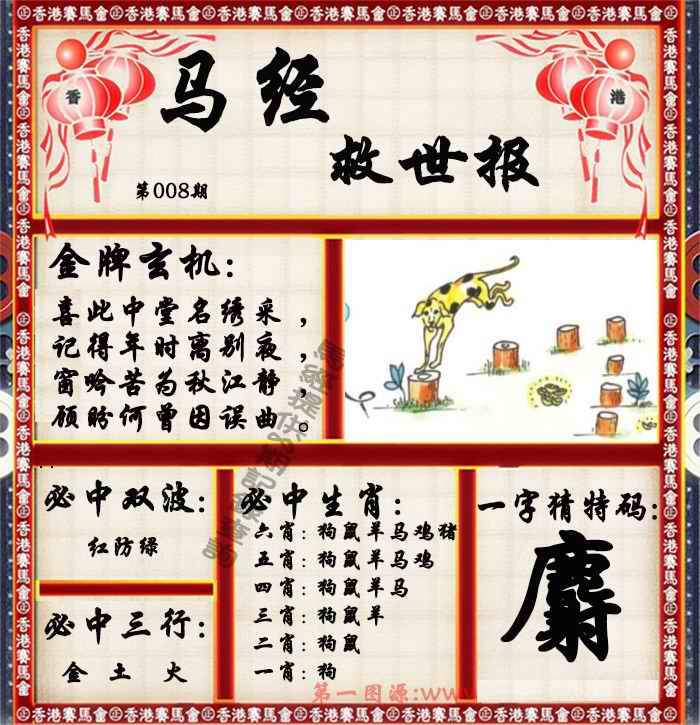 香港賽馬會㊣香港賽馬會㊣香港賽馬會㊣香港賽馬會㊣香港賽馬會㊣香港賽馬會
香
港
马经
救世报
第008期
金牌玄机：
喜此中堂名绣采，
记得年时离别夜，
窗吟苦为秋江静，
顾盼何曾因误曲。
必中双波：
红防绿
必中三行：
金 土 火
必中生肖：
六肖：狗鼠羊马鸡猪
五肖：狗鼠羊马鸡
四肖：狗鼠羊马
三肖：狗鼠羊
二肖：狗鼠
一肖：狗
一字猜特码：
麝
第一图源:www